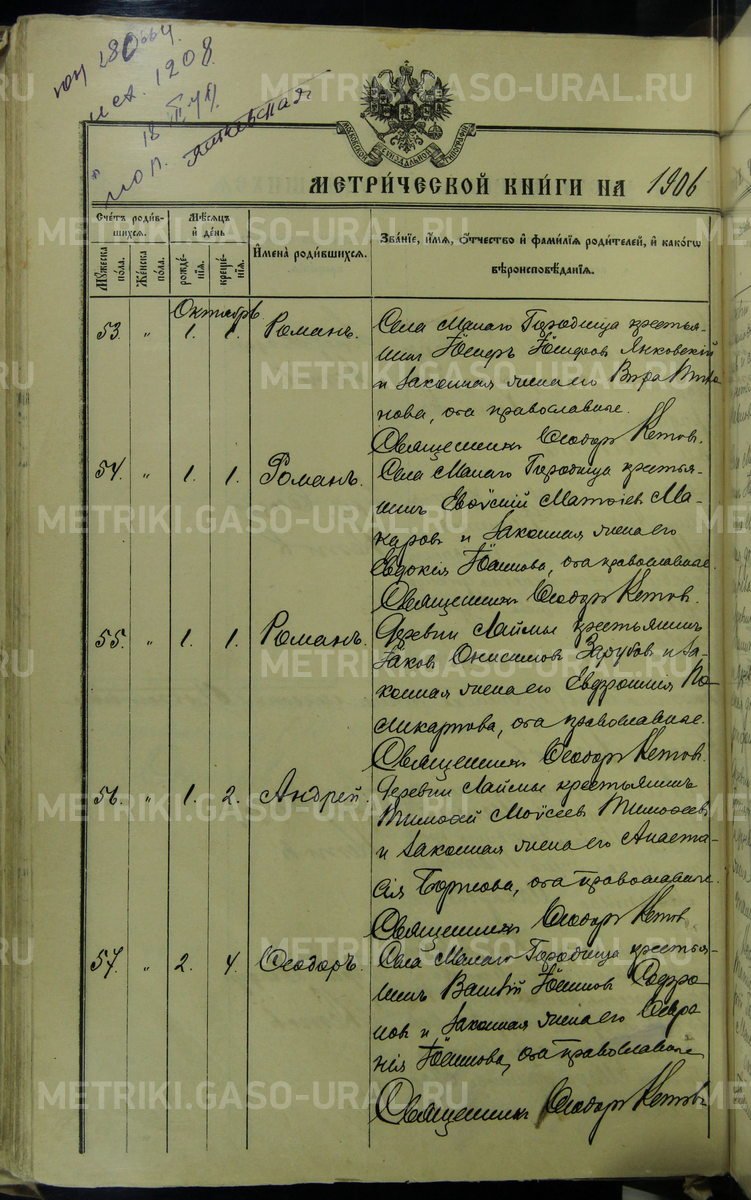 исх. 1208
METRIKI.GASO-URAL.RU
МЕТРИ́ЧЕСКОЙ КНИ́ГИ НА 1906
Сче́тъ роди́вшихся.
Му́жеска по́ла.
Же́нска по́ла.
Мѣ́сяцъ и́ де́нь
рожде́нїя.
креще́нїя.
И҆мена̀ роди́вшихся.
Зва́нїе, и҆́мя, ѻ҆́тчество и҆ фамилїя роди́телей, и҆ како́гѡ
вѣроисповѣ́данїя.
Октябрь
53. " 1. 1. Романъ.
Села Малаго Городища крестья-
нин Іосифъ Іосифов Янковскій
и законная жена его Вѣра
нова, оба православные.
Священникъ Ѳеодоръ Кетов.
54. " 1. 1. Романъ.
Села Малаго Городища крестья-
нинъ Матѳіев Ма-
каров и законная жена его
Евдокія Іоаннова, оба православные.
Священникъ Ѳеодоръ Кетов.
55. " 1. 1. Романъ.
Деревни Лаймы крестьянинъ
Іаков Онисимов Зарубов и за-
конная жена его Евфросинія По-
ликарпова, оба православные.
Священникъ Ѳеодоръ Кетов.
56. " 1. 2. Андрей.
Деревни Лаймы крестьянинъ
Тимоѳей Моѵсеев Тимоѳеев
и законная жена его Анаста-
сія Борисова, оба православные.
Священникъ Ѳеодоръ Кетов
57. " 2. 4. Ѳеодоръ.
Села Малаго Городища крестья-
нинъ Іоаннов Софро-
нов и законная жена его
нія Іоаннова, оба православные
Священникъ Ѳеодоръ Кетов